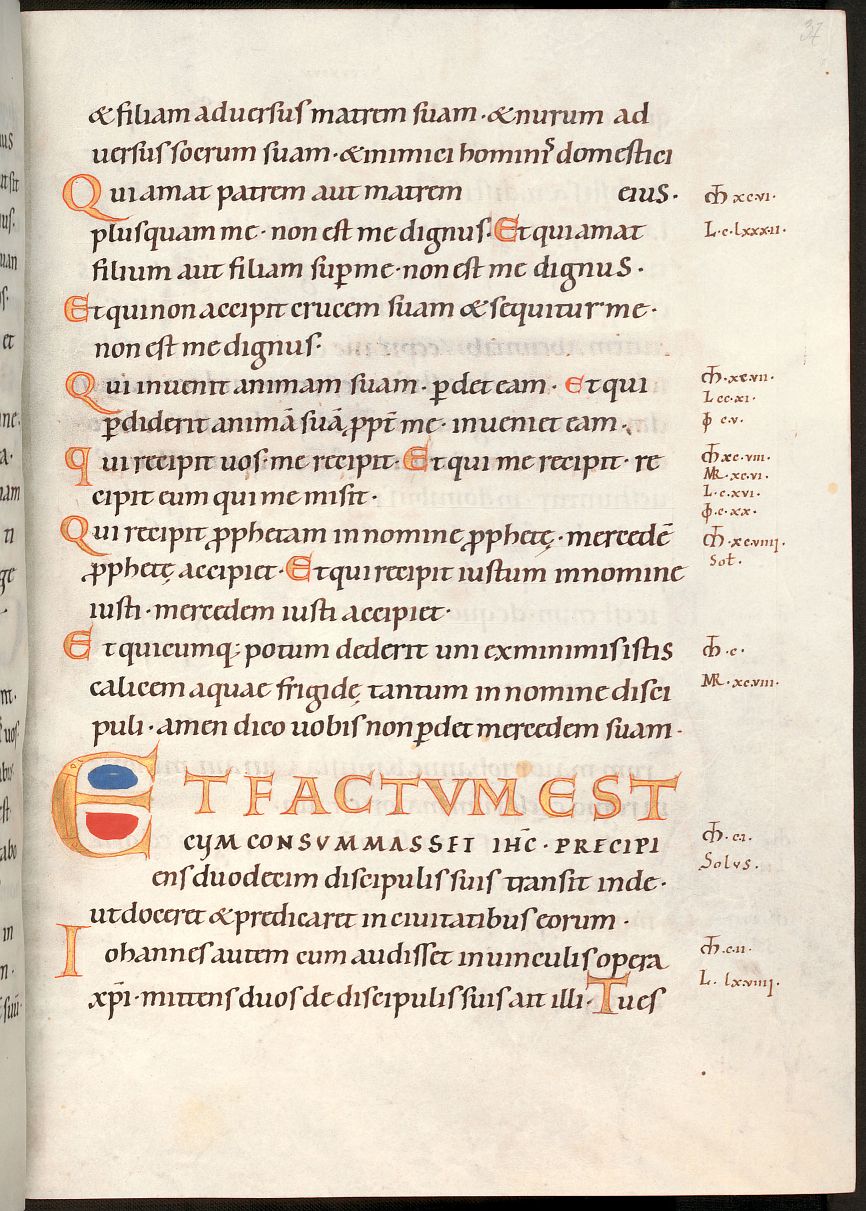 37
& filiam aduersus matrem suam · & nurum ad
uersus socrum suam · & inimici hominis̄ domestici
Qui amat patrem aut matrem eius ·
plusquam me · non est me dignus · Et qui amat
filium aut filiam sup̄ me · non est me dignus ·
Et qui non accipit crucem suam & sequitur me ·
non est me dignus ·
Qui inuenit animam suam · ꝑdet eam · Et qui
ꝑdiderit animā suā ꝓpt̄ me · inueniet eam ·
qui recipit uos · me recipit · Et qui me recipit · re
cipit eum qui me misit ·
Qui recipit ꝓphetam in nomine ꝓphetę · mercedē
ꝓphetę accipiet · Et qui recipit iustum in nomine
iusti · mercedem iusti accipiet ·
Et quicumq; potum dederit uni ex minimis istis
calicem aquae frigidę tantum in nomine disci
puli · amen dico uobis non ꝑdet mercedem suam ·
ET FACTVM EST
CVM CONSVMMASSET IHC̄ · PRECIPI
ens duodecim discipulis suis transiit inde ·
ut doceret & predicaret in ciuitatibus eorum ·
Iohannes autem cum audisset in uinculis opera
xp̄i · mittens duos de discipulis suis ait illi · Tu es
M̄ xc·vi·
L·c·lxxx·ii·
M̄·xc·vii·
L cc·xi·
M̄ xc·viii·
MR·xc·vi·
L·c·xvi·
M̄·xc·viiii·
Sol·
M̄·c·
MR·xc·viii·
M̄·c·i·
Solvs·
M̄·c·ii·
L· lxviiii·